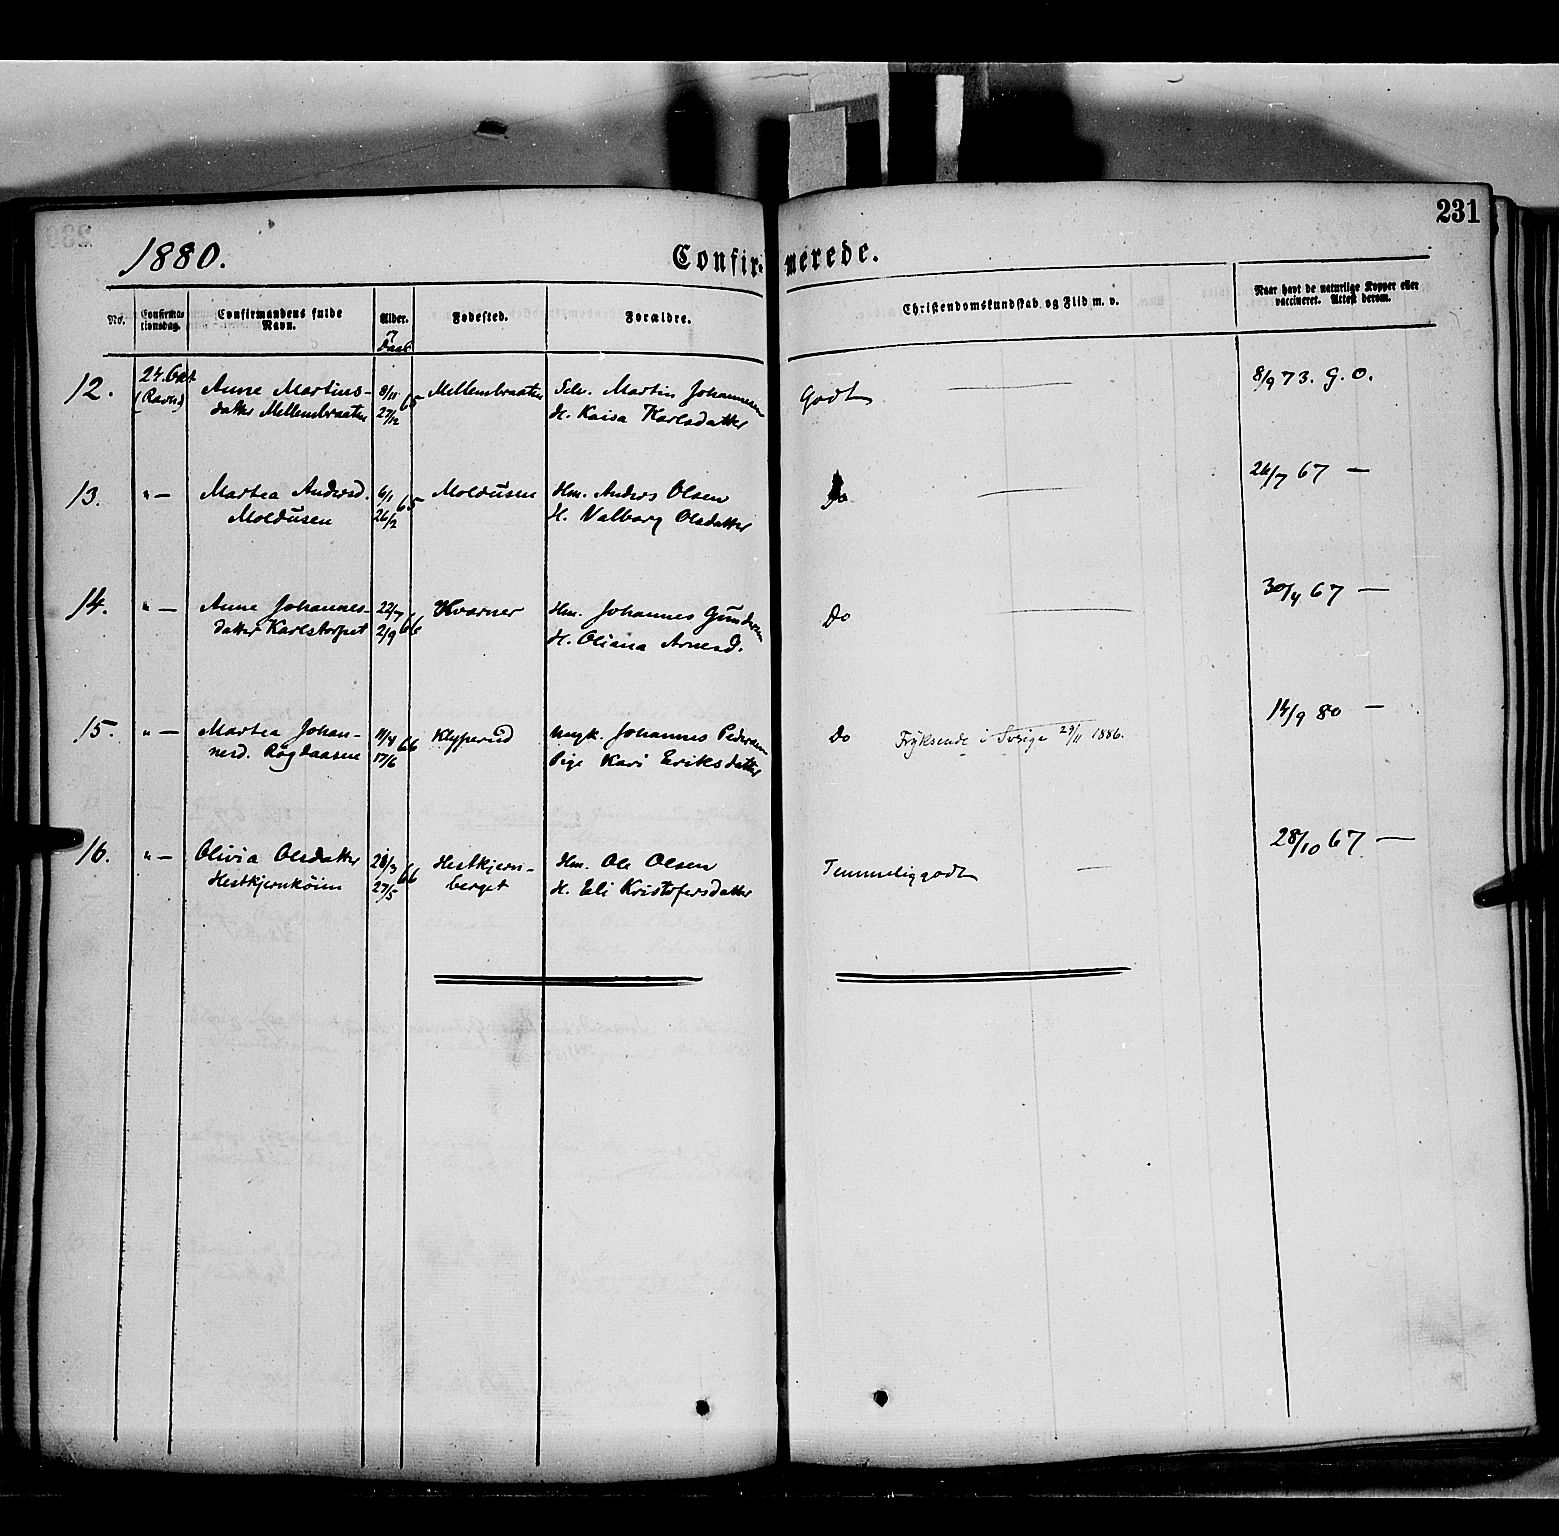 231
1880.
Confirmerede.
No. Confirmationsdag. Confirmandens fulde Navn. Alder. Fødested. Forældre. Christendomskundskab og Flid m. v. Naar havt de naturlige Kopper eller vaccineret. Attest derom.
Daab
12. 24. Okt. Anne Martins- 8/11 65 Mellembraaten Selv. Martin Johannesen Godt — 8/9 73. G. O.
(Ravn) datter Mellembraaten 27/12 H. Kaisa Karlsdatter
13. " — Martea Andersd. 6/1 65 Moldusen Hm. Anders Olsen Do — 26/7 67 —
Moldusen 26/2 H. Valborg Olsdatter
14. " — Anne Johannes- 22/7 66 Kvarner Hm. Johannes Gundersen Do — 30/4 67 —
datter Karlstorpet 2/9 H. Oliana Arnesd.
15. " — Martea Johan- 11/4 66 Klyperud Ungk. Johannes Pedersen Do Fryksende i Sverige 29/11 1886. 14/9 80 —
nesd. Røgdaasen 17/6 Pige Kari Eriksdatter
16. " — Olivia Olsdatter 28/3 66 Hestkjern- Hm. Ole Olsen Temmelig godt — 28/10 67 —
Hestkjernkøien 27/5 berget H. Eli Kristofersdatter